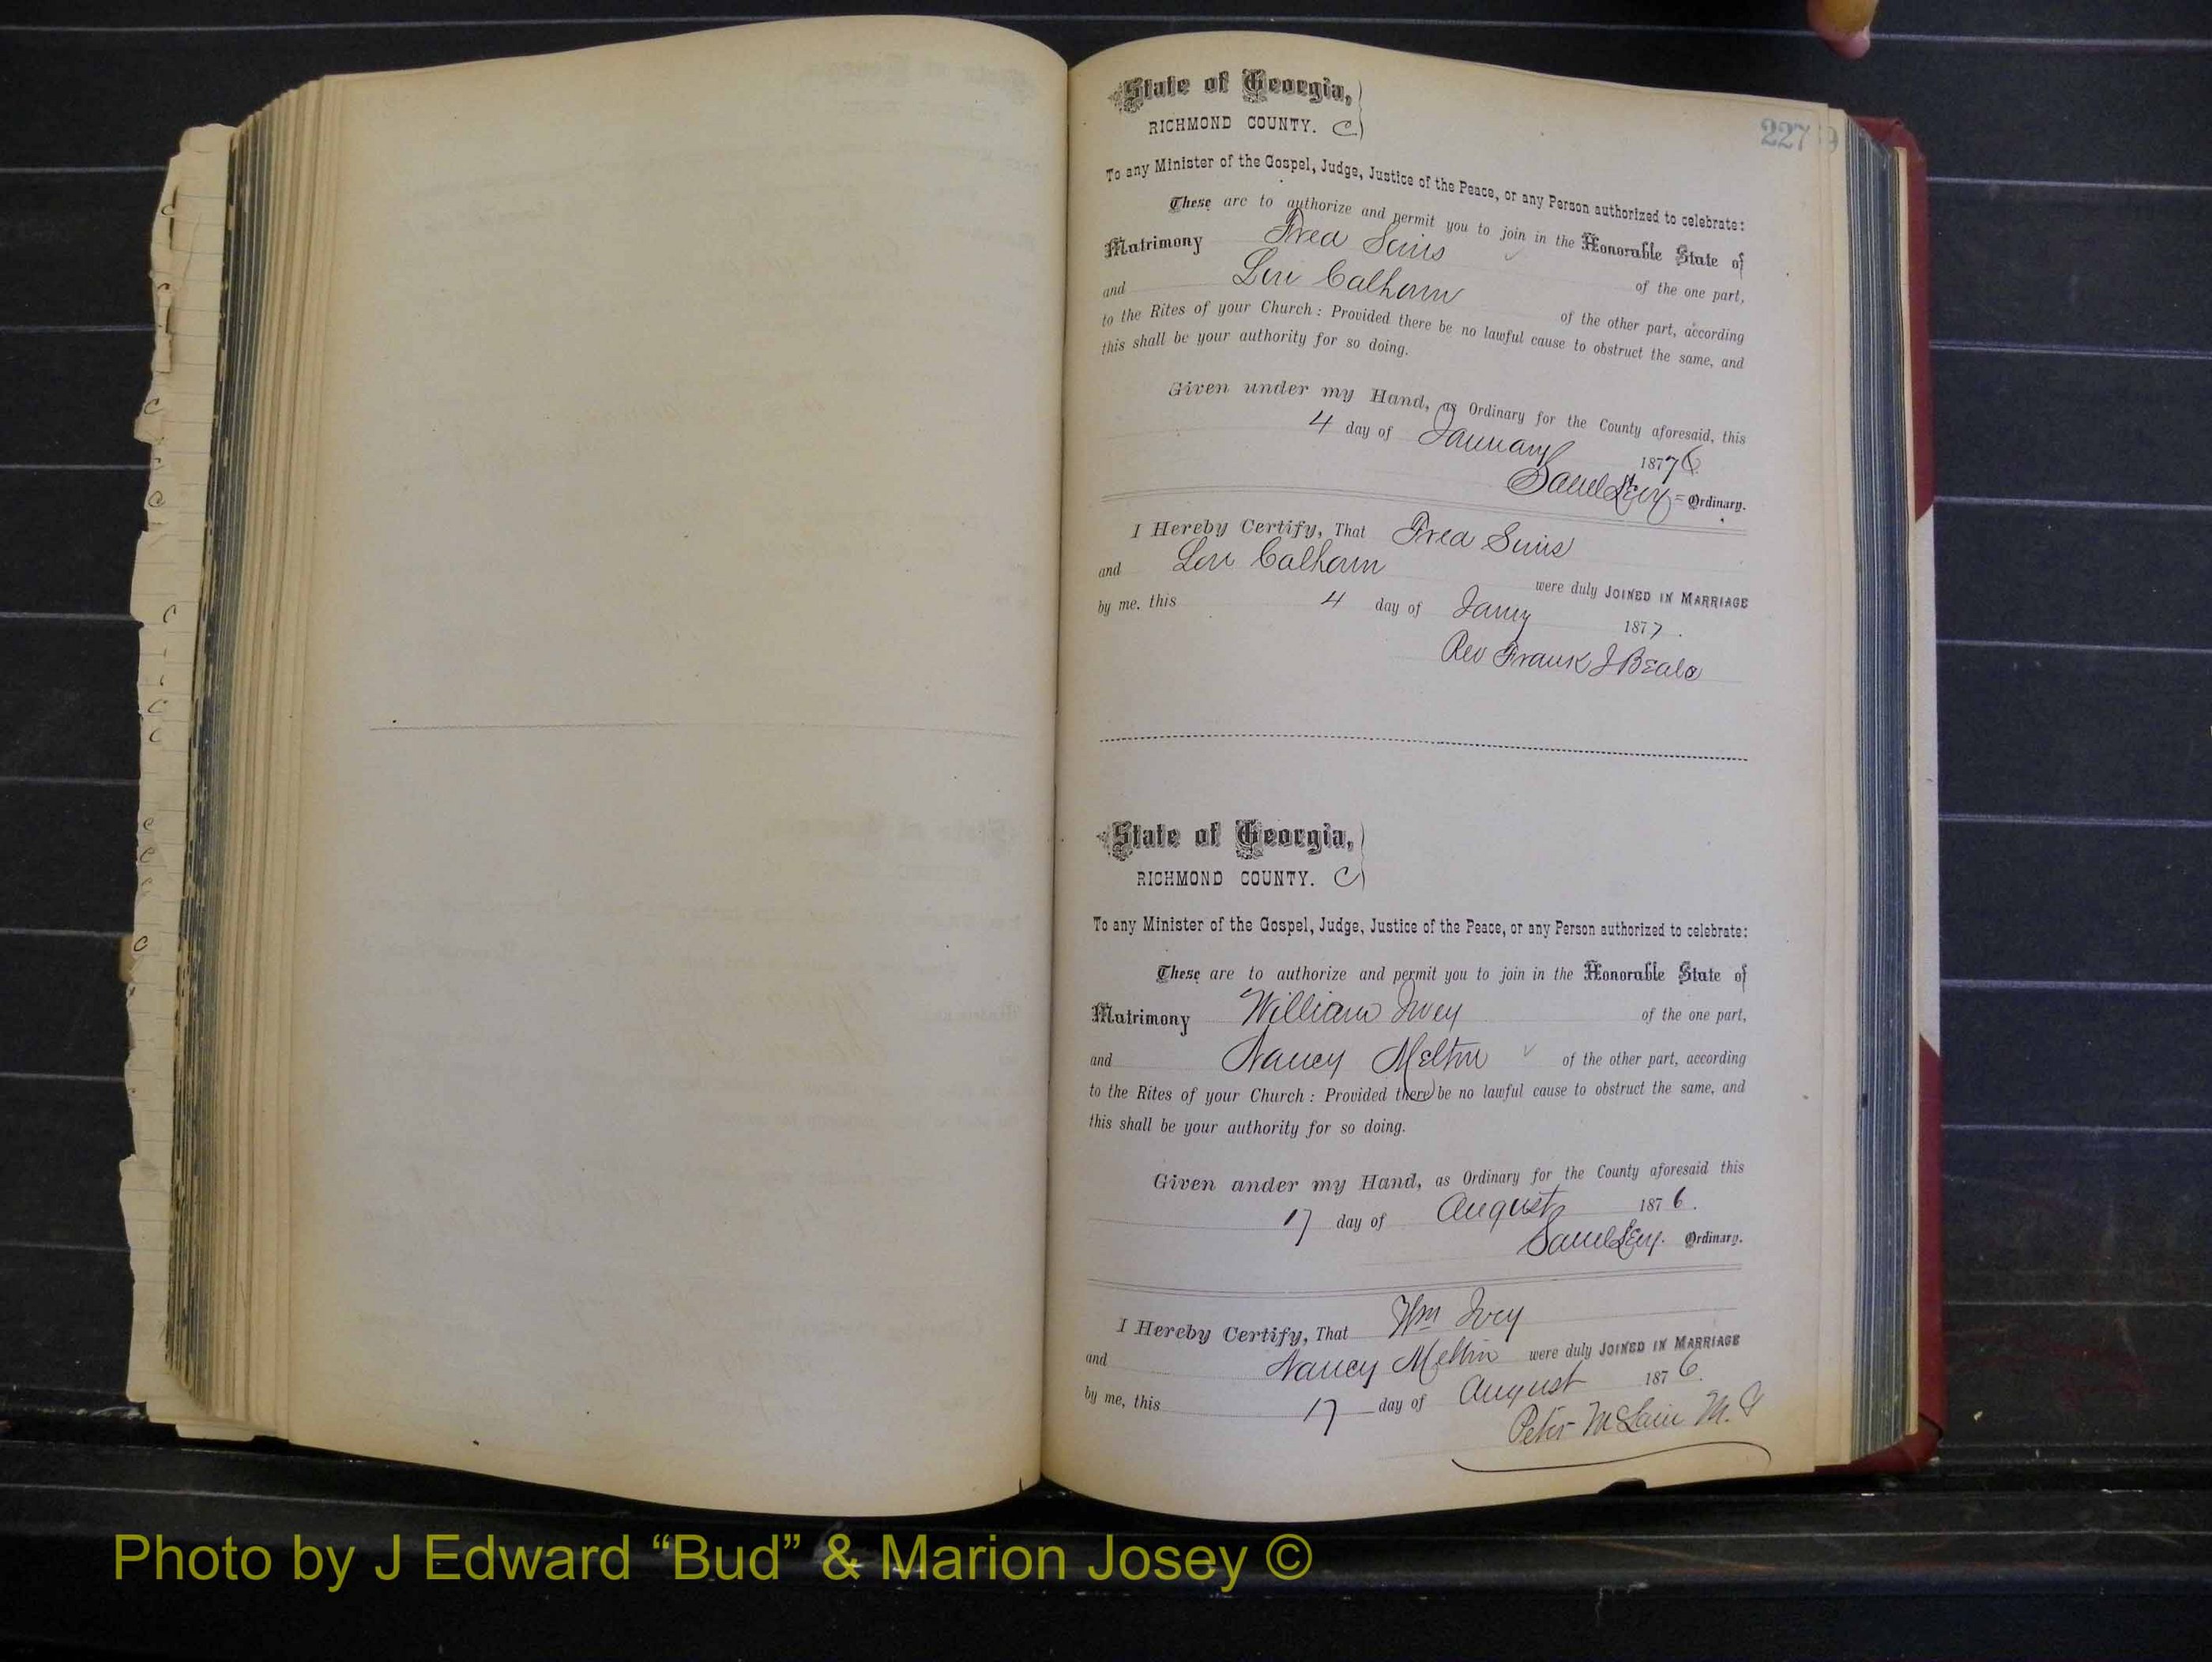 State of Georgia,
RICHMOND COUNTY. C
227
To any Minister of the Gospel, Judge, Justice of the Peace, or any Person authorized to celebrate:
These are to authorize and permit you to join in the Honorable State of
Matrimony Fred Sims of the one part,
and Lou Calhoun of the other part, according
to the Rites of your Church: Provided there be no lawful cause to obstruct the same, and
this shall be your authority for so doing.
Given under my Hand, as Ordinary for the County aforesaid, this
4 day of January 1876
Saml Levy = Ordinary.
I Hereby Certify, That Fred Sims
and Lou Calhoun were duly JOINED IN MARRIAGE
by me. this 4 day of Jany 1877.
Rev Frank J Beale
State of Georgia,
RICHMOND COUNTY. C
To any Minister of the Gospel, Judge, Justice of the Peace, or any Person authorized to celebrate:
These are to authorize and permit you to join in the Honorable State of
Matrimony William Ivey of the one part,
and Nancy Melton of the other part, according
to the Rites of your Church: Provided there be no lawful cause to obstruct the same, and
this shall be your authority for so doing.
Given under my Hand, as Ordinary for the County aforesaid this
17 day of August 1876.
Saml Levy. Ordinary.
I Hereby Certify, That Wm Ivey
and Nancy Melton were duly JOINED IN MARRIAGE
by me, this 17 day of August 1876.
Peter McLain M. G
Photo by J Edward “Bud” & Marion Josey ©